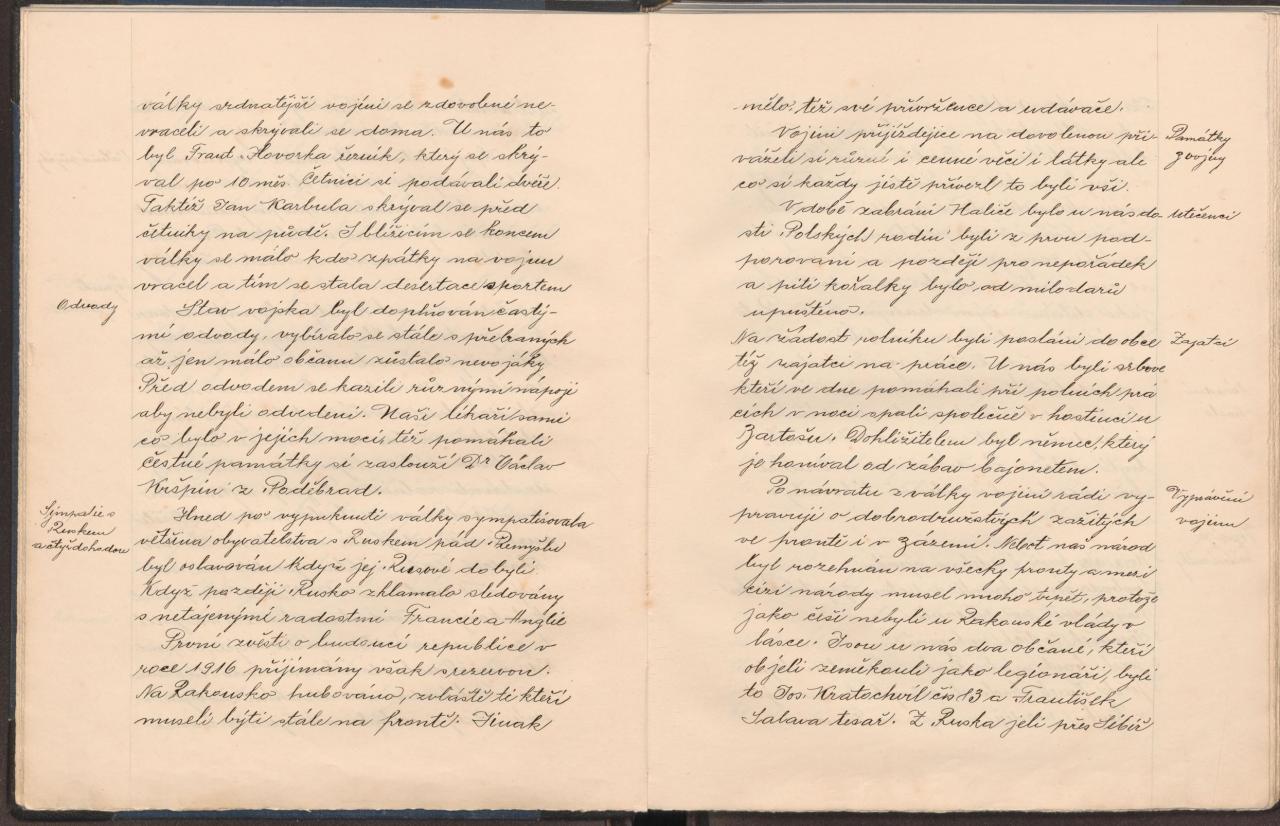 války srdnatější vojíni se zdovolené ne-
vraceli a skrývali se doma. U nás to
byl Frant. Hovorka řezník, který se skrý-
val po 10 měs. Četníci si podávali dvéře.
Taktéž Jan Karbula skrýval se před
četníky na půdě. S blížícím se koncem
války se málo kdo zpátky na vojnu
vracel a tím se stala desertace sportem
Odvody
Stav vojska byl doplňován častý-
mi odvody, vybíralo se stále s přebraných
až jen málo občanu zůstalo nevojáky
Před odvodem se kazili různými nápoji
aby nebyli odvedeni. Naši lékaři sami
co bylo v jejich moci, též pomáhali
čestné památky si zaslouží Dr Václav
Kršpín z Poděbrad.
Simpatie s
Ruskem
a čtyřdohodou
Hned po vypuknutí války sympatisovala
většina obyvatelstva s Ruskem pád Přemyšlu
byl oslavován když jej Rusové dobyli
Když později Rusko zklamalo sledovány
s netajenými radostmi Francie a Anglie
První zvěsti o budoucí republice v
roce 1916 přijímány však srezervou.
Na Rakousko hubováno, zvláště ti kteří
museli býti stále na frontě. Jinak
mělo též své přívržence a udavače.
Památky
z vojny
Vojíni přijíždějíce na dovolenou při-
váželi si různé i cenné věci i látky ale
co si každy jistě přivezl to byli vši.
Utečenci
V době zabrání Haliče bylo u nás do-
sti Polských rodin byli z prvu pod-
porovani a později pro nepořádek
a pití kořalky bylo od milodarů
upuštěno.
Zajatci
Na žádost rolníku byli posláni do obce
též zajatci na práce. U nás byli srbove
kteří ve dne pomáhali při polních prá
cích v noci spali společně v hostinci u
Bartošu. Dohlížitelem byl němec, který
je honíval od zábav bajonetem.
Vyprávění
vojínu
Po návratu z války vojíni rádi vy-
pravují o dobrodružstvých zažitých
ve frontě i v zázemí. Neboť naš národ
byl rozehnán na všecky fronty a mezi
cizí národy musel mnoho trpět, protože
jako češi nebyli u Rakouské vlády v
lásce. Jsou u nás dva občané, kteří
objeli zeměkouli jako legionáři, byli
to Jos. Kratochvíl čís 13 a František
Salava tesař. Z Ruska jeli přes Sibiř